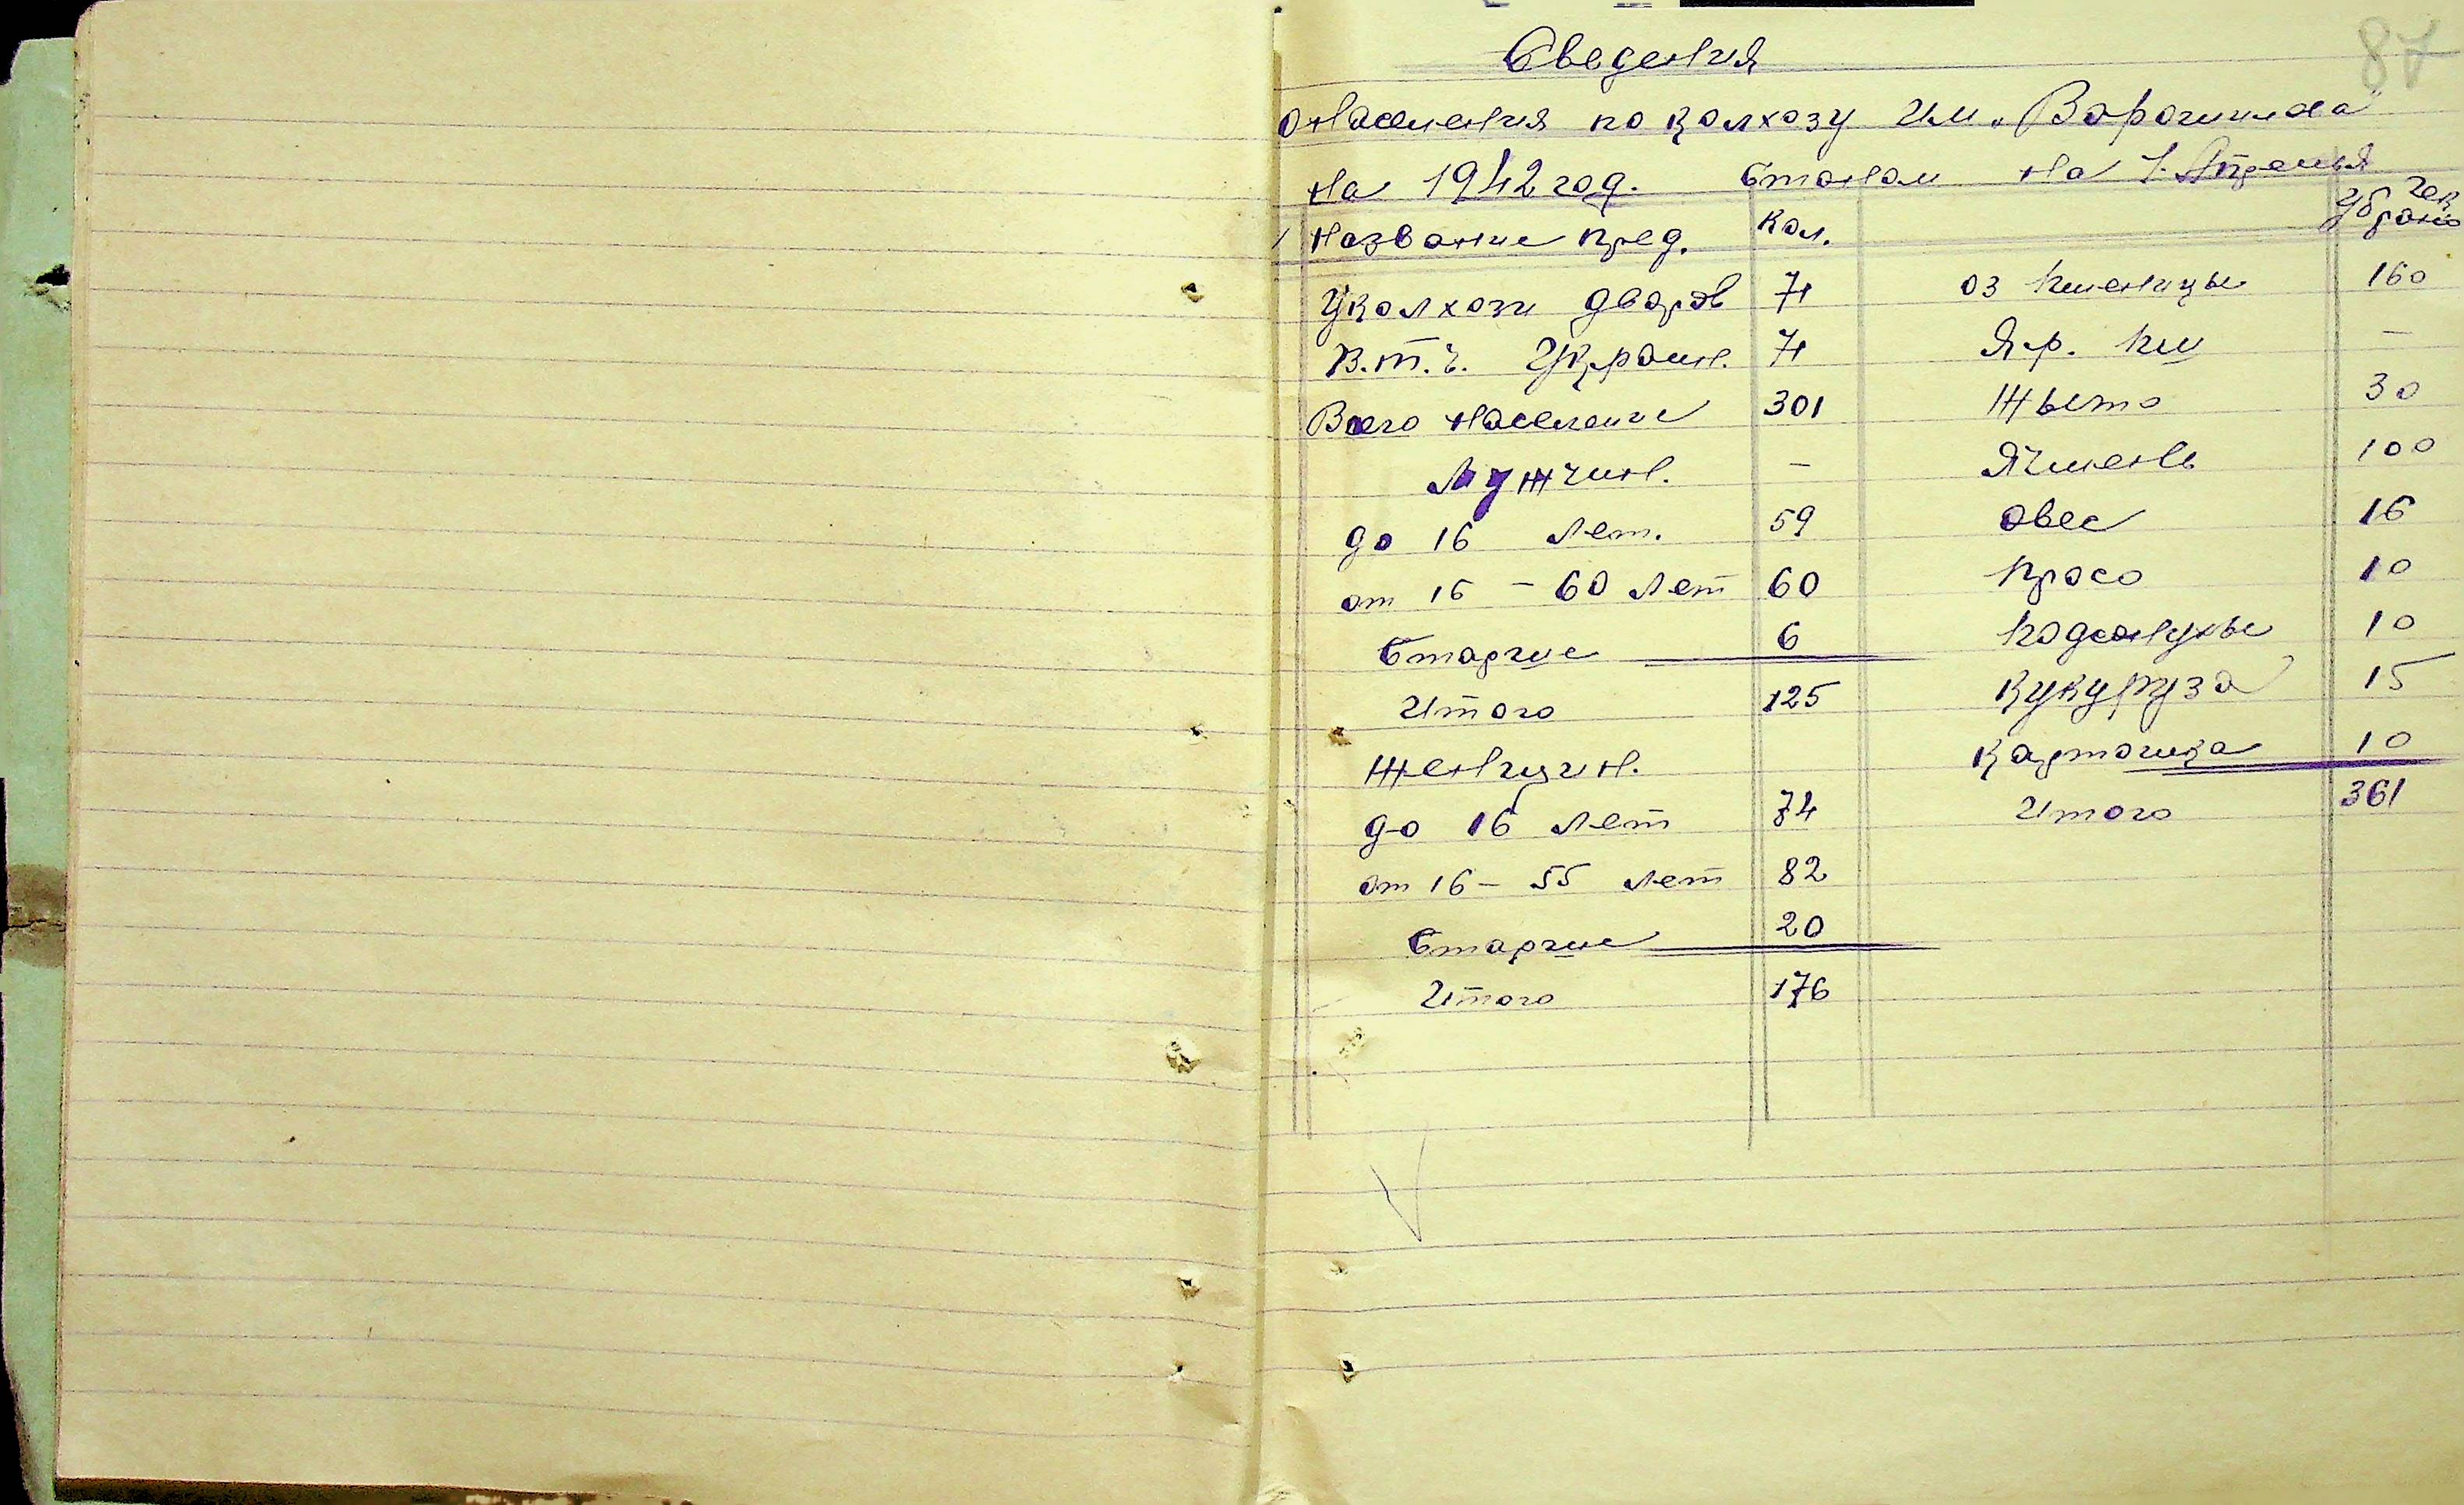 87
Сведения
о населения по колхозу им. „Ворошилова"
на 1942 год. Станом на 1. Апреля
Название пред. Кол. Убрано гек
У колхози дворов 71 оз пшеницы 160
В.т.ч. Украин. 71 Яр. пш —
Всего население 301 Жыто 30
Мужчин. — Ячмень 100
до 16 лет. 59 овес 16
от 16 – 60 лет 60 просо 10
Старше 6 подсолнухы 10
Итого 125 кукуруза 15
Женщин. картошка 10
до 16 лет 74 Итого 361
от 16 – 55 лет 82
Старше 20
Итого 176